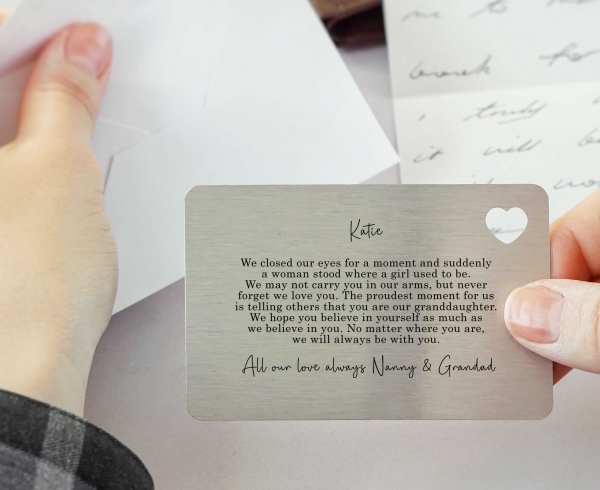 Katie
We closed our eyes for a moment and suddenly
a woman stood where a girl used to be.
We may not carry you in our arms, but never
forget we love you. The proudest moment for us
is telling others that you are our granddaughter.
We hope you believe in yourself as much as
we believe in you. No matter where you are,
we will always be with you.
All our love always Nanny & Grandad
to
for
truly
it will